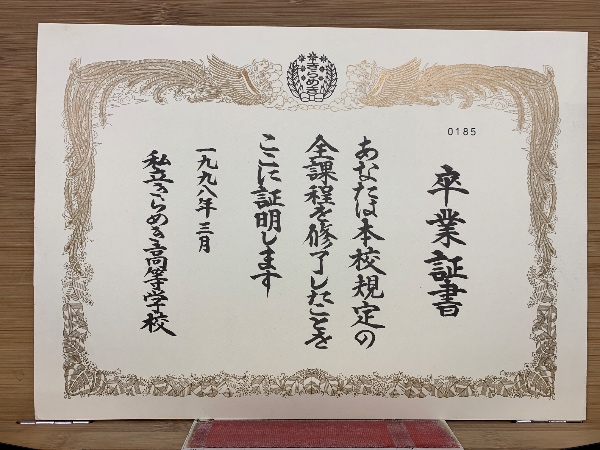 きらめき
0185
卒業証書
あなたは本校規定の
全課程を修了したことを
ここに証明します
一九九八年三月
私立きらめき高等学校